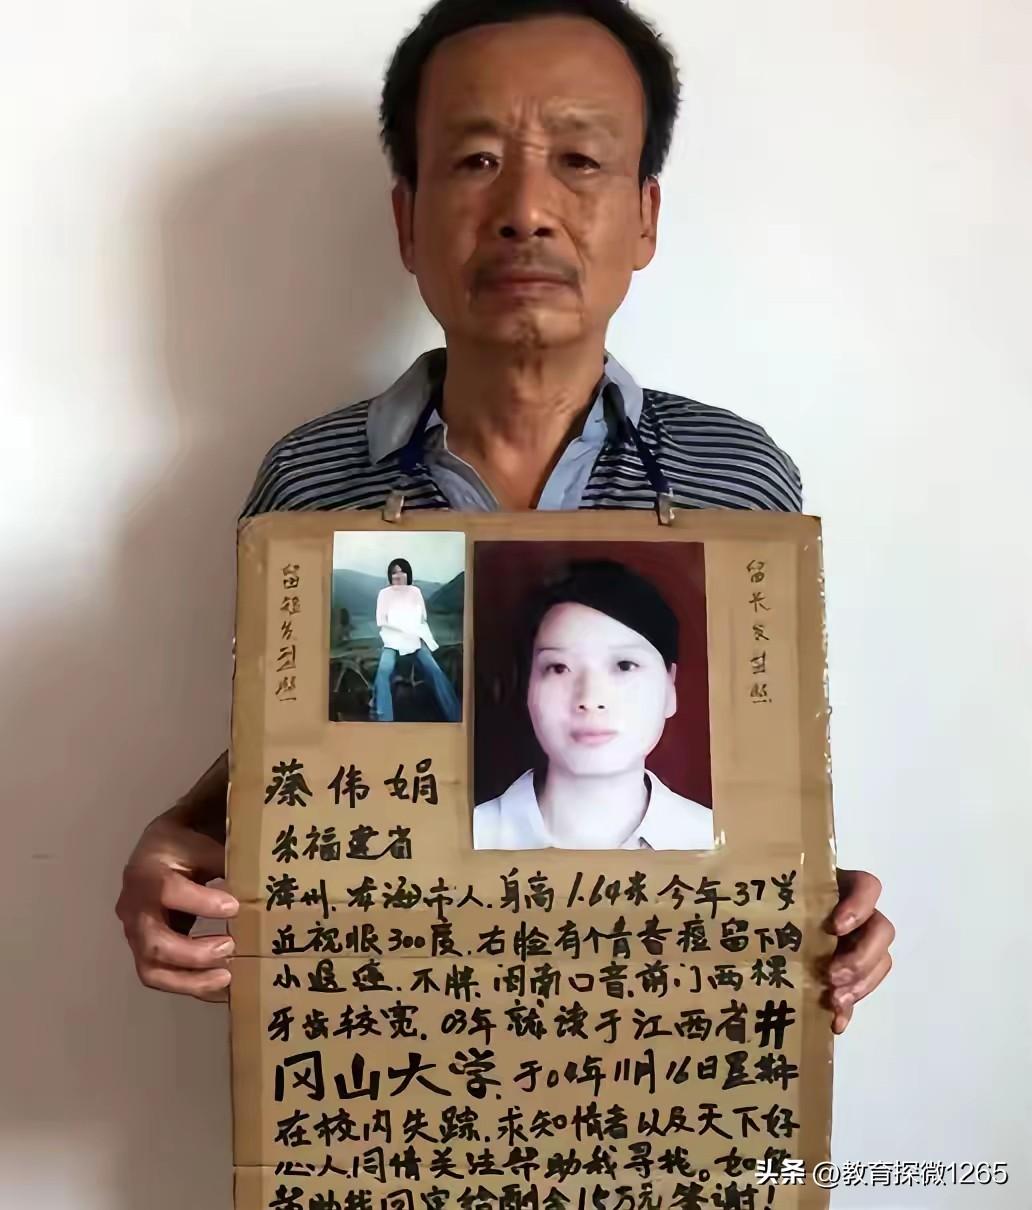 留短发型照
留长发型照
蔡伟娟
福建省
漳州.龙海市人.身高1.64米.今年37岁
近视眼300度.右脸有个青春痘留下的
小退痣.不胖.闽南口音.前门两棵
牙齿较宽.03年就读于江西省井
冈山大学.于04年11月16日星期
在校内失踪.求知情者以及天下好
心人同情关注帮助我寻找。如能
帮助我回定给酬金15万元答谢!
头条 @教育探微1265